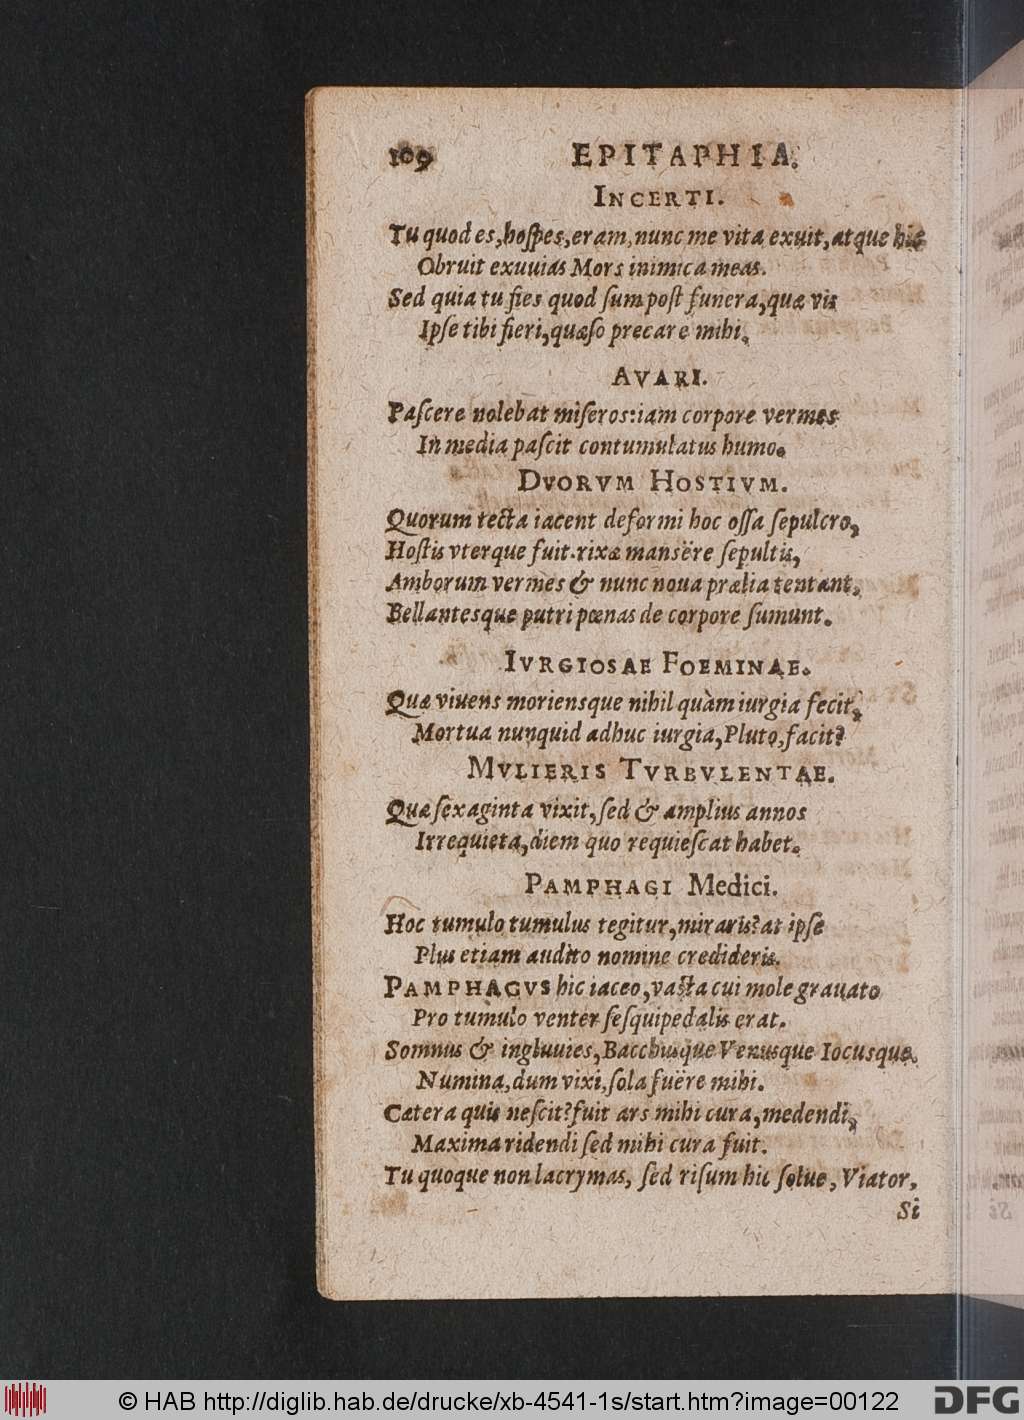 109 EPITAPHIA.
INCERTI.
Tu quod es, hoſpes, eram, nunc me vita exuit, atque hic
Obruit exuuias Mors inimica meas.
Sed quia tu fies quod ſum poſt funera, quæ vis
Ipſe tibi fieri, quæſo precare mihi.
AVARI.
Paſcere nolebat miſeros: iam corpore vermes
In media paſcit contumulatus humo.
DVORVM HOSTIVM.
Quorum tecta iacent deformi hoc oſſa ſepulcro,
Hoſtis vterque fuit. rixæ mansëre ſepultis,
Amborum vermes & nunc noua prælia tentant,
Bellantesque putri pœnas de corpore ſumunt.
IVRGIOSAE FOEMINAE.
Quæ viuens moriensque nihil quàm iurgia fecit,
Mortua nunquid adhuc iurgia, Pluto, facit?
MVLIERIS TVRBVLENTAE.
Quæ ſexaginta vixit, ſed & amplius annos
Irrequieta, diem quo requieſcat habet.
PAMPHAGI Medici.
Hoc tumulo tumulus tegitur, miraris? at ipſe
Plus etiam audito nomine credideris.
PAMPHAGVS hic iaceo, vaſta cui mole grauato
Pro tumulo venter ſeſquipedalis erat.
Somnus & ingluuies, Bacchusque Venusque Iocusque
Numina, dum vixi, ſola fuëre mihi.
Cætera quis neſcit? fuit ars mihi cura, medendi,
Maxima ridendi ſed mihi cura fuit.
Tu quoque non lacrymas, ſed riſum hic ſolue, Viator,
Si
© HAB http://diglib.hab.de/drucke/xb-4541-1s/start.htm?image=00122
DFG